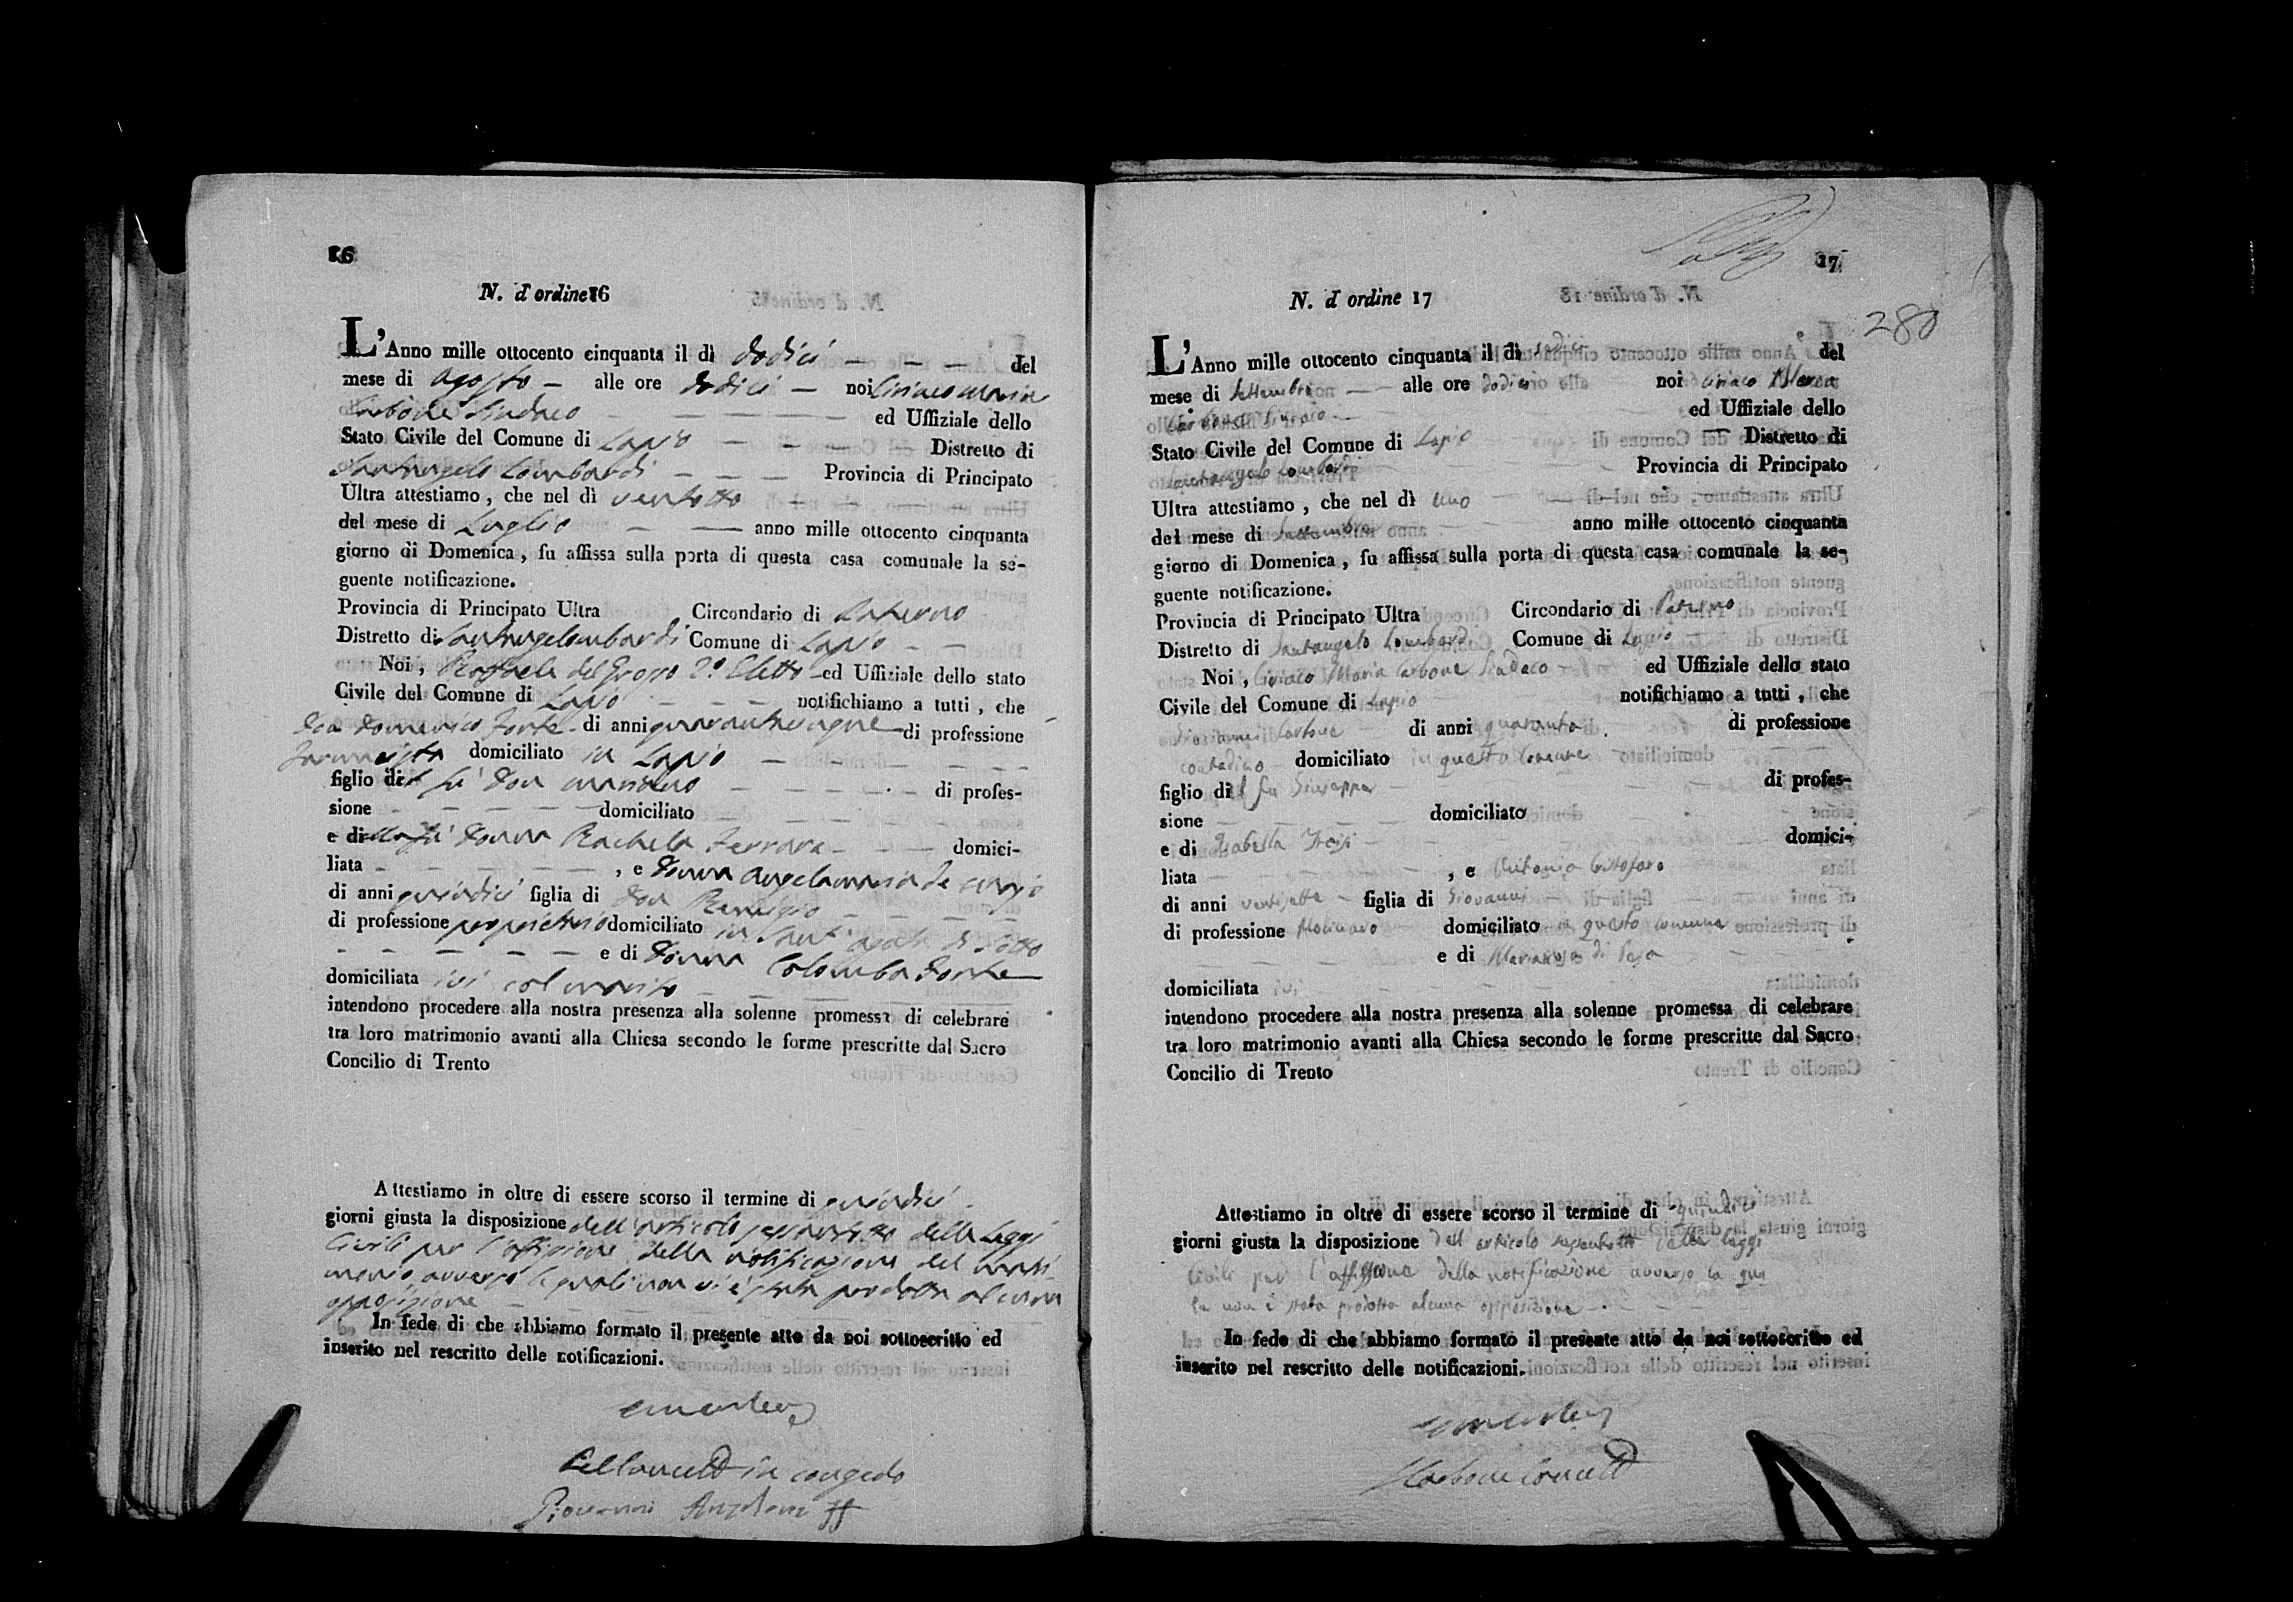 16
N. d'ordine 16
L'Anno mille ottocento cinquanta il dì dodici — — — del
mese di Agosto — alle ore dodici — noi Ciriaco Maria
Carbone Sindaco — — — — — ed Uffiziale dello
Stato Civile del Comune di Lapio — — — Distretto di
Santangelo Lombardi — — — Provincia di Principato
Ultra attestiamo, che nel dì ventotto
del mese di Luglio — — anno mille ottocento cinquanta
giorno di Domenica, fu affissa sulla porta di questa casa comunale la se-
guente notificazione.
Provincia di Principato Ultra Circondario di Paterno
Distretto di Santangelo Lombardi Comune di Lapio — —
Noi, Raffaele del Grosso 2º Eletto ed Uffiziale dello stato
Civile del Comune di Lapio — — — notifichiamo a tutti, che
Don Domenico Forte di anni quarantacinque di professione
Farmacista domiciliato in Lapio — — — — —
figlio del fù Don — — — di profes-
sione — — — — domiciliato — — — — —
e della fù Donna Rachela Ferrara — — — domici-
liata — — — — — , e Donna Angelamaria de
di anni quindici figlia di Don Remigio — — — —
di professione proprietario domiciliato in Sant'Agata di Sotto
— — — — — e di Donna Colomba Forte
domiciliata ivi col marito — — — — —
intendono procedere alla nostra presenza alla solenne promessa di celebrare
tra loro matrimonio avanti alla Chiesa secondo le forme prescritte dal Sacro
Concilio di Trento
Attestiamo in oltre di essere scorso il termine di quindici
giorni giusta la disposizione dell'articolo sessantotto delle Leggi
Civili per l'affissione della notificazione del matri-
monio avverso le quali non vi è stata prodotta alcuna
opposizione — — — — —
In fede di che abbiamo formato il presente atto da noi sottoscritto ed
inserito nel rescritto delle notificazioni.
in congedo
Giovanni
17
280
N. d'ordine 17
L'Anno mille ottocento cinquanta il dì del
mese di Settembre — alle ore dodici noi Ciriaco Maria
Carbone Sindaco — ed Uffiziale dello
Stato Civile del Comune di Lapio — Distretto di
Santangelo Lombardi Provincia di Principato
Ultra attestiamo, che nel dì uno
del mese di Settembre anno mille ottocento cinquanta
giorno di Domenica, fu affissa sulla porta di questa casa comunale la se-
guente notificazione.
Provincia di Principato Ultra Circondario di Paterno
Distretto di Santangelo Lombardi Comune di Lapio
Noi, Ciriaco Maria Carbone Sindaco — ed Uffiziale dello stato
Civile del Comune di Lapio notifichiamo a tutti, che
Carbone di anni quaranta di professione
contadino domiciliato in questo Comune
figlio del fu Giuseppe — di profes-
sione — — — — domiciliato
e di Isabella Troisi — domici-
liata — — — — , e Antonia Cristoforo
di anni ventisette — figlia di Giovanni
di professione Molinaro domiciliato in questo comune
e di Mariarosa di
domiciliata ivi
intendono procedere alla nostra presenza alla solenne promessa di celebrare
tra loro matrimonio avanti alla Chiesa secondo le forme prescritte dal Sacro
Concilio di Trento
Attestiamo in oltre di essere scorso il termine di quindici
giorni giusta la disposizione dell'articolo sessantotto delle leggi
Civili per l'affissione della notificazione avverso la qua
le non è stata prodotta alcuna opposizione —
In fede di che abbiamo formato il presente atto da noi sottoscritto ed
inserito nel rescritto delle notificazioni.